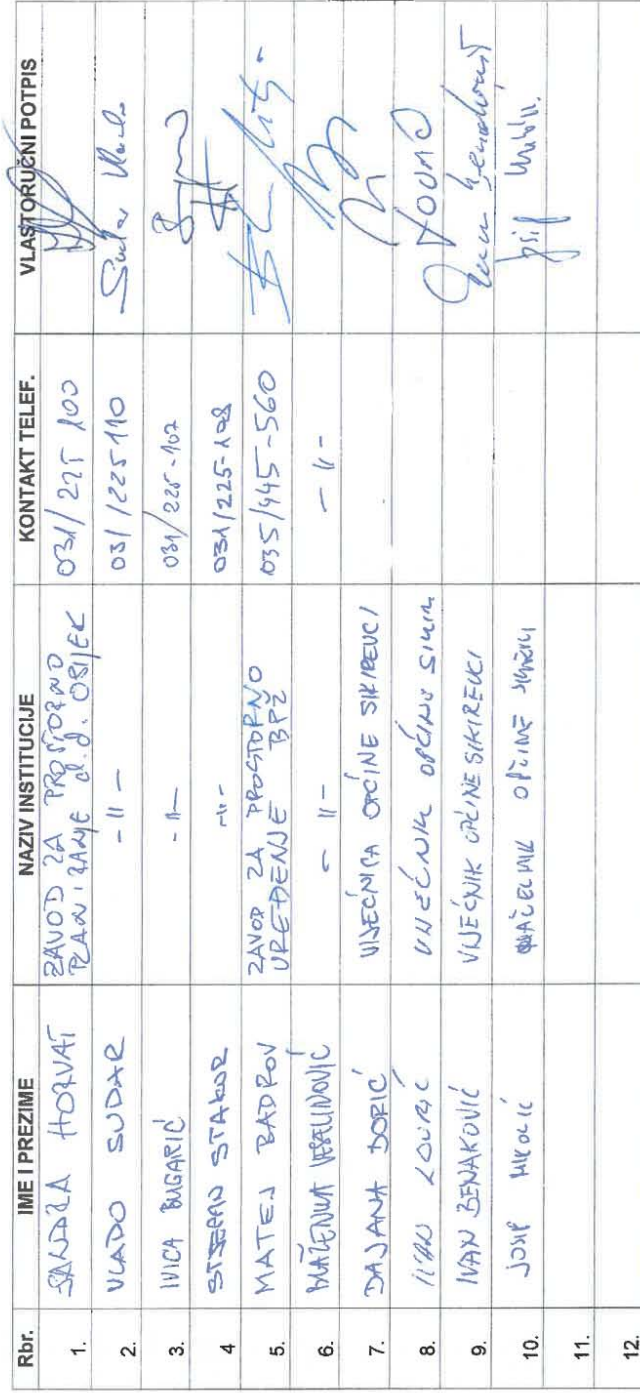 Rbr. IME I PREZIME NAZIV INSTITUCIJE KONTAKT TELEF. VLASTORUČNI POTPIS
1. SANDRA HORVAT ZAVOD ZA PROSTORNO 031/225 100
PLANIRANJE d.d. OSIJEK
2. VLADO SUDAR -||- 031/225110 Sudar Vlado
3. IVICA BUGARIĆ -||- 031/225-107
4 STJEPAN STAKOR -||- 031/225-108
5. MATEJ BADROV ZAVOD ZA PROSTORNO 035/445-560
UREĐENJE BPŽ
6. BLAŽENKA VESELINOVIĆ -||- -||-
7. DAJANA DORIĆ VIJEĆNICA OPĆINE SIKIREVCI
8. IVAN LOVRIĆ VIJEĆNIK OPĆINE
9. IVAN BENAKOVIĆ VIJEĆNIK OPĆINE SIKIREVCI
10. JOSIP NIKOLIĆ NAČELNIK OPĆINE Josip
11.
12.